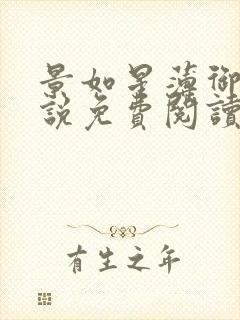 景如星薄御
說免費閱讀
有生之年